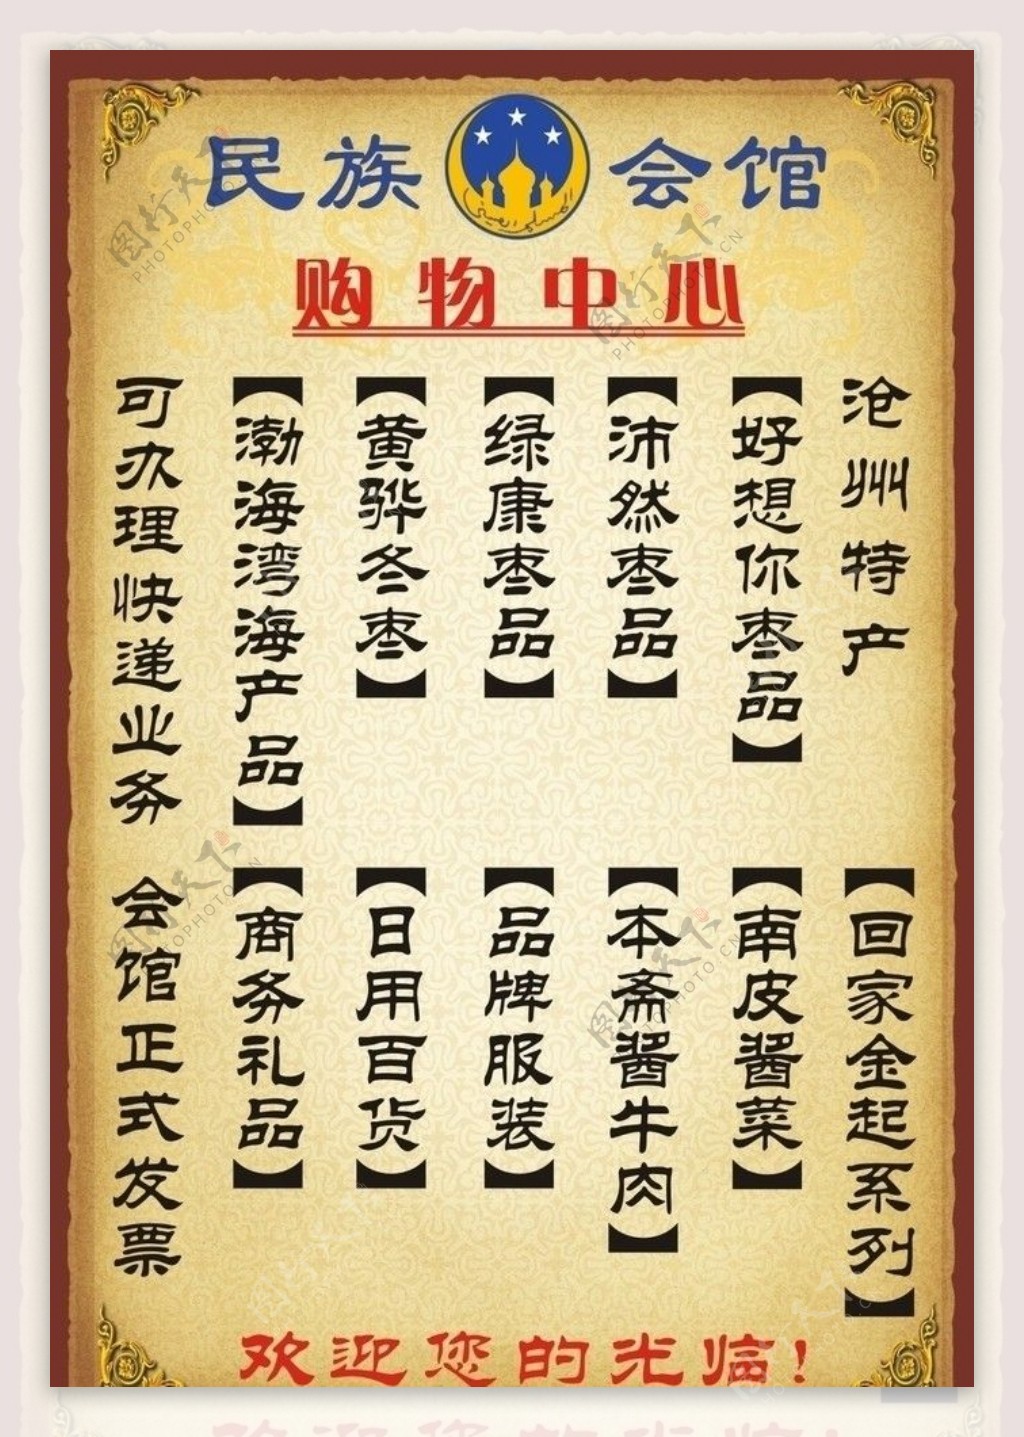 民族会馆
购物中心
沧州特产
【好想你枣品】
【沛然枣品】
【绿康枣品】
【黄骅冬枣】
【渤海湾海产品】
可办理快递业务
【回家金起系列】
【南皮酱菜】
【本斋酱牛肉】
【品牌服装】
【日用百货】
【商务礼品】
会馆正式发票
欢迎您的光临!
图行天下
PHOTOPHOTO.CN